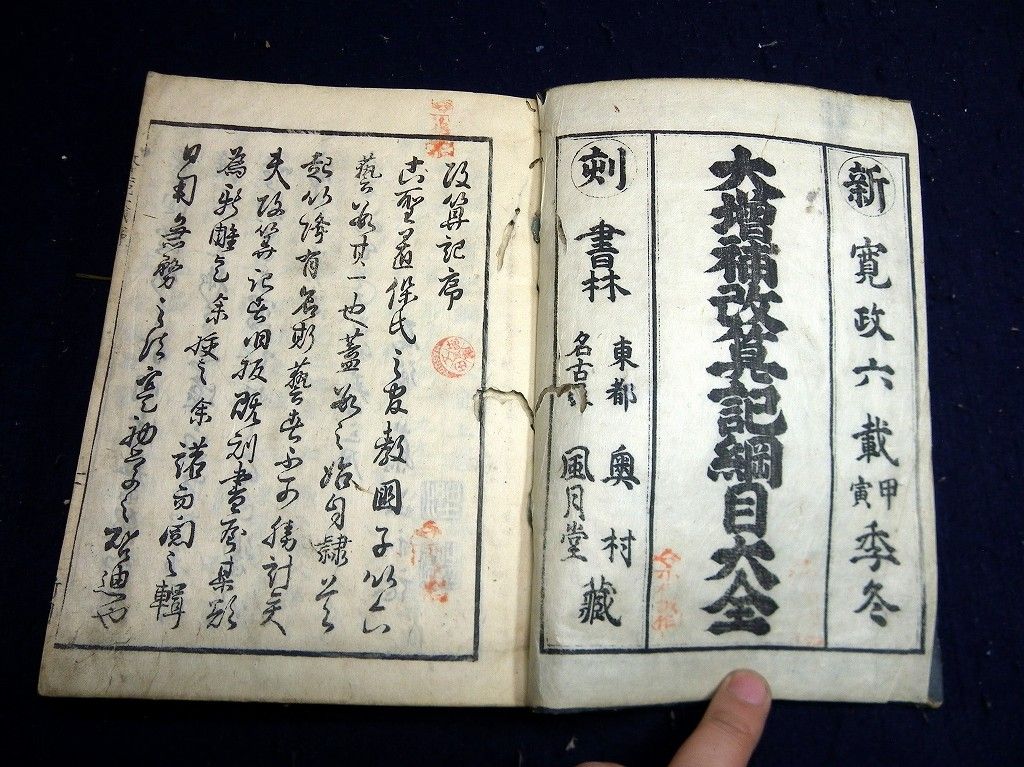 新 寛政六載甲寅季冬
大増補改算記綱目大全
刻 書林 東都 奥村
名古 風月堂 藏
改算記序
古聖道保氏之官教國子以六
藝數其一也蓋數之始自隷首
起以降有名斯藝者不可勝計矣
夫改算記者旧板既刻書屋某欲
為新雕乞余校之余諾而閲之輯
日用之法寔初学之啓迪也